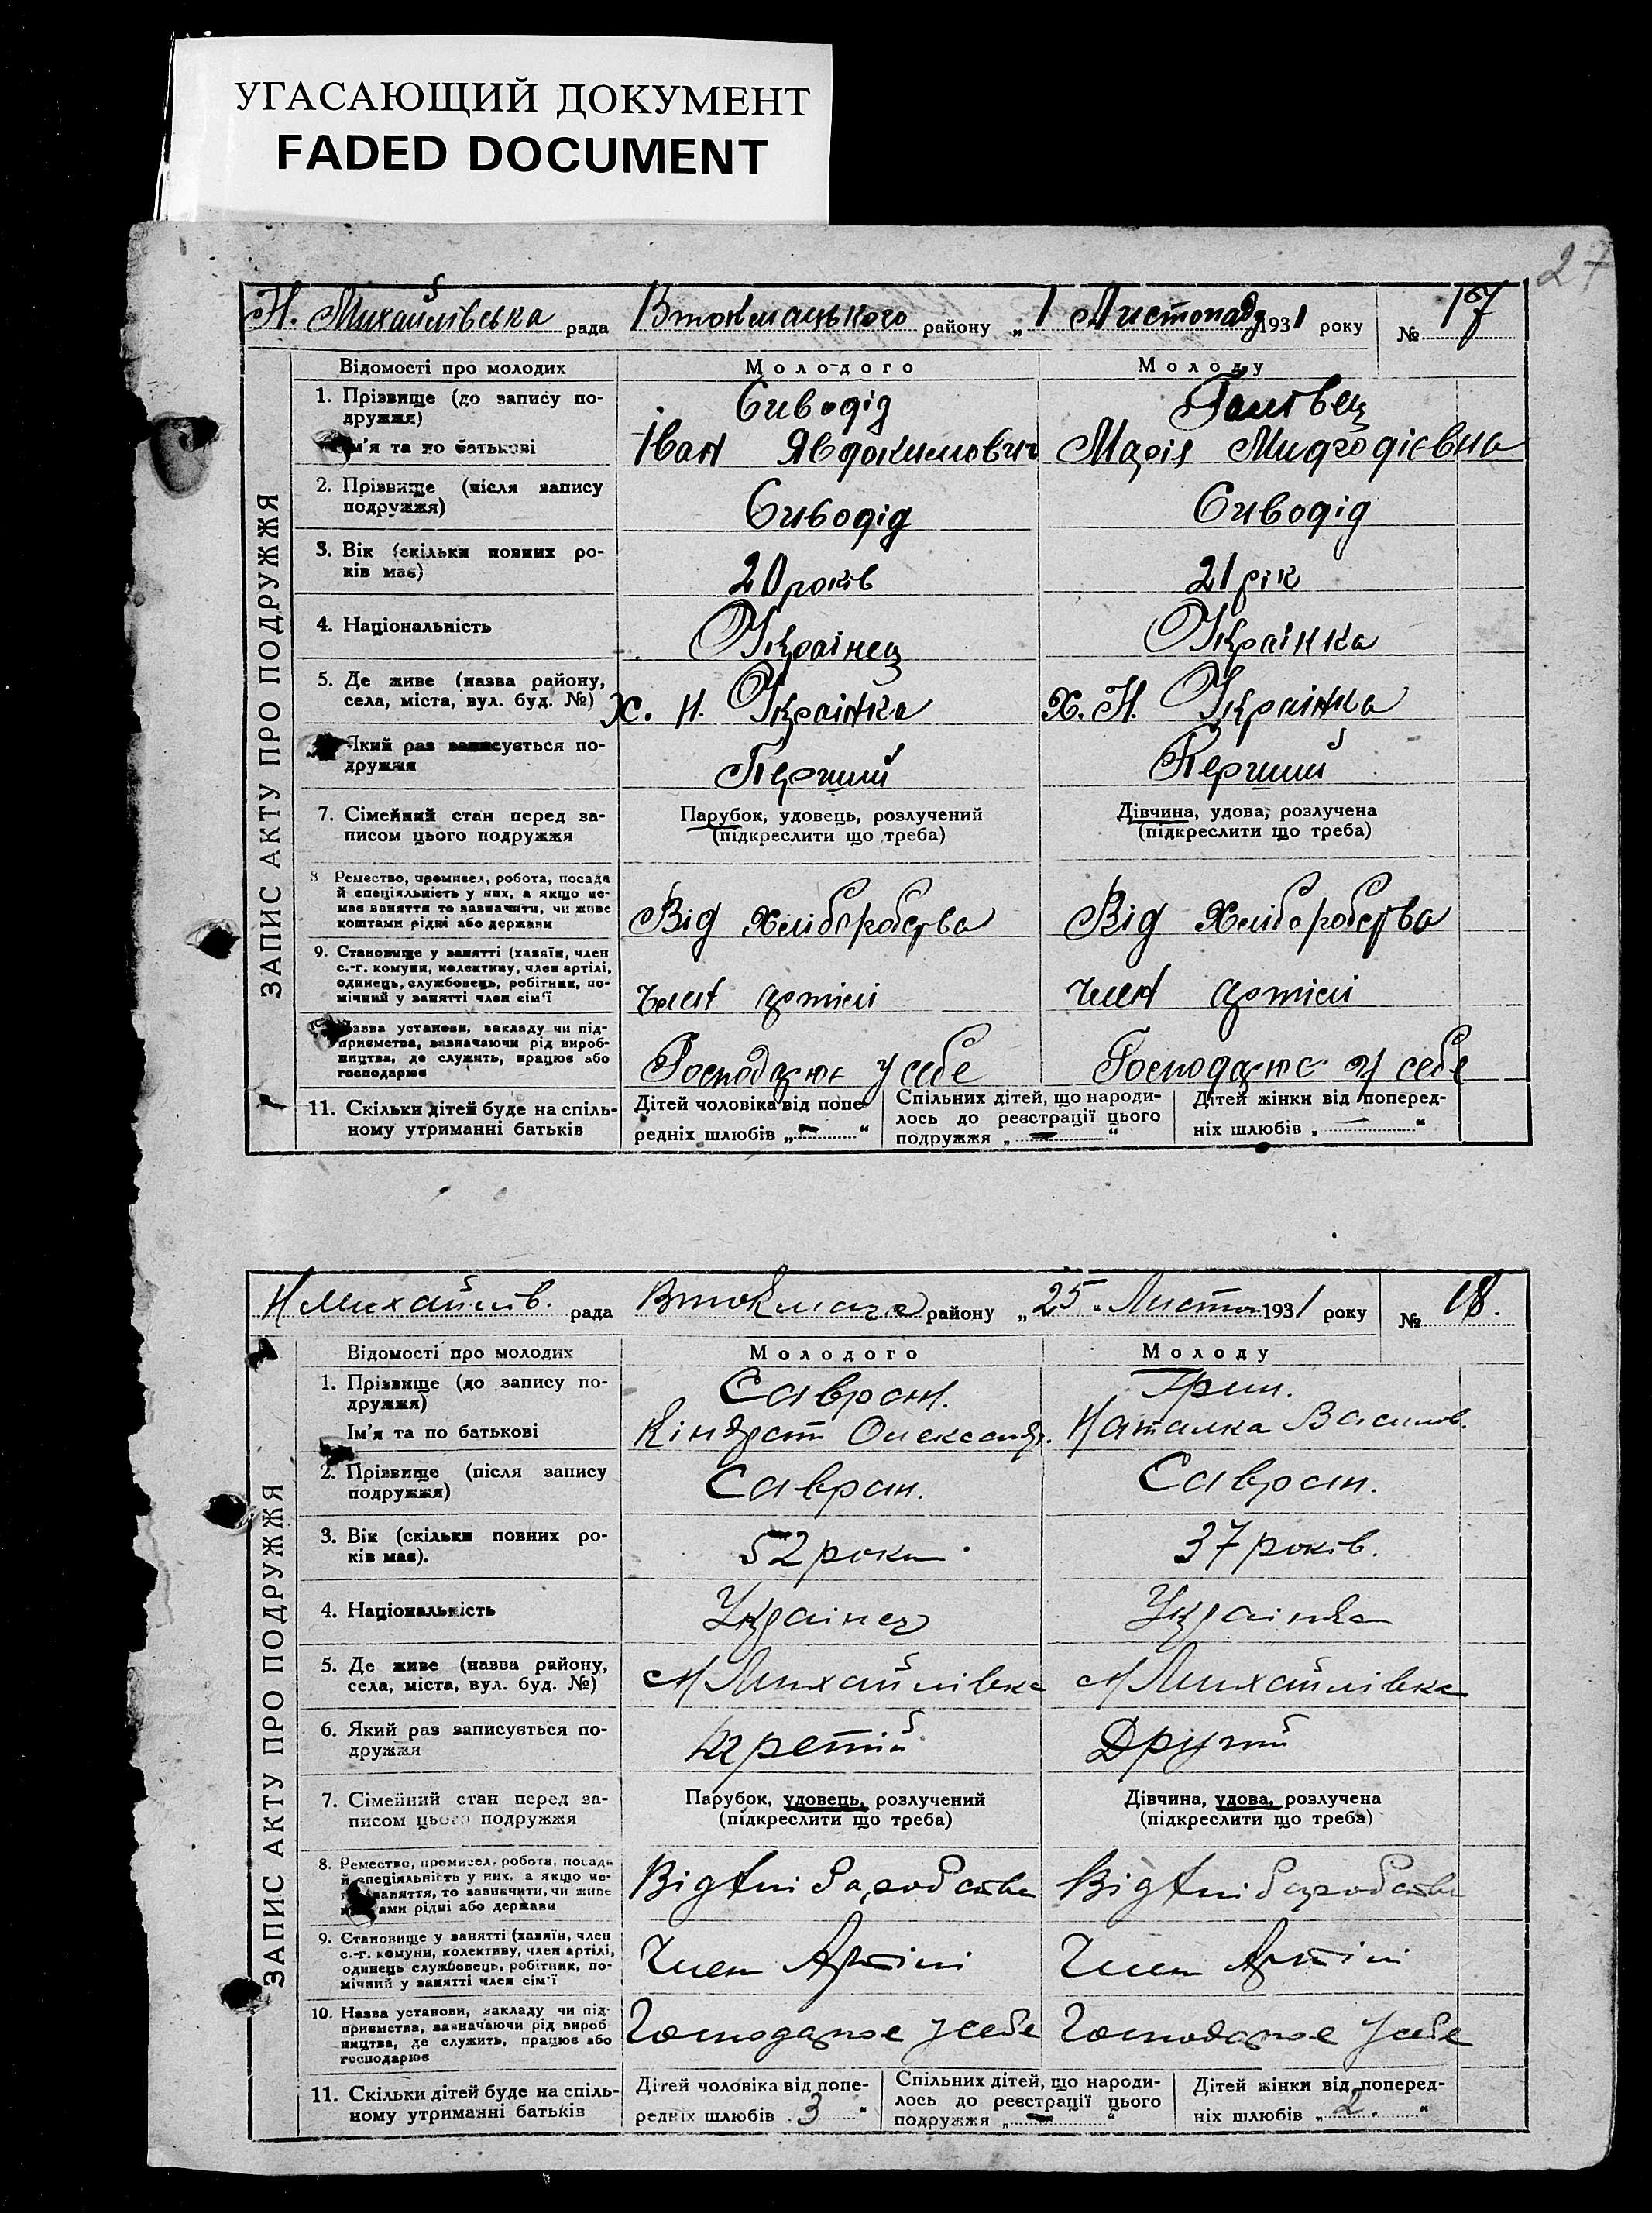 УГАСАЮЩИЙ ДОКУМЕНТ
FADED DOCUMENT
27
Н. Михайлівська рада Втокмацького району „ 1 Листопада 1931 року № 17
ЗАПИС АКТУ ПРО ПОДРУЖЖЯ
Відомості про молодих Молодого Молоду
1. Прізвище (до запису по-
дружжя) Сиводід
Ім'я та по батькові Іван Явдокимович Марія Мифодієвна
2. Прізвище (після запису
подружжя) Сиводід Сиводід
3. Вік (скільки повних ро-
ків має) 20 років 21 рік
4. Національність Українец Українка
5. Де живе (назва району,
села, міста, вул. буд. №) х. Н. Українка х. Н. Українка
Який раз записується по-
дружжя Перший Перший
7. Сімейний стан перед за-
писом цього подружжя
Парубок, удовець, розлучений
(підкреслити що треба)
Дівчина, удова, розлучена
(підкреслити що треба)
8 Ремество, промисел, робота, посада
й спеціяльність у них, а якщо не-
має заняття то зазначити, чи живе
коштами рідні або держави
Від хліборобства Від хліборобства
9. Становище у занятті (хазяїн, член
с.-г. комуни, колективу, член артілі,
одинець, службовець, робітник, по-
мічний у занятті член сім'ї
член артілі член артілі
Назва установи, закладу чи під-
приємства, зазначаючи рід вироб-
ництва, де служить, працює або
господарює
Господарює у себе Господарює у себе
11. Скільки дітей буде на спіль-
ному утриманні батьків
Дітей чоловіка від попе-
редніх шлюбів „ — “
Спільних дітей, що народи-
лось до реєстрації цього
подружжя „ — “
Дітей жінки від поперед-
ніх шлюбів „ — “
Н Михайлів. рада Втокмача району „ 25 „ Листоп 1931 року № 18.
ЗАПИС АКТУ ПРО ПОДРУЖЖЯ
Відомості про молодих Молодого Молоду
1. Прізвище (до запису по-
дружжя) Савран.
Ім'я та по батькові Кіндрат Олександр. Наталка Василів.
2. Прізвище (після запису
подружжя) Савран. Савран.
3. Вік (скільки повних ро-
ків має). 52 роки 37 років.
4. Національність Українец Українка
5. Де живе (назва району,
села, міста, вул. буд. №) Н Михайлівка Н Михайлівка
6. Який раз записується по-
дружжя Третій Другий
7. Сімейний стан перед за-
писом цього подружжя
Парубок, удовець, розлучений
(підкреслити що треба)
Дівчина, удова, розлучена
(підкреслити що треба)
8. Ремество, промисел, робота, посада
й спеціяльність у них, а якщо не-
має заняття, то зазначити, чи живе
коштами рідні або держави
Від хлібаробства Від хлібаробства
9. Становище у занятті (хазяїн, член
с.-г. комуни, колективу, член артілі,
одинець службовець, робітник, по-
мічний у занятті член сім'ї
Член Артіли Член Артіли
10. Назва установи, закладу чи під-
приємства, зазначаючи рід вироб
ництва, де служить, працює або
господарює
Господарює у себе Господарює у себе
11. Скільки дітей буде на спіль-
ному утриманні батьків
Дітей чоловіка від попе-
редніх шлюбів „ 3 “
Спільних дітей, що народи-
лось до реєстрації цього
подружжя „ — “
Дітей жінки від поперед-
ніх шлюбів „ 2. “